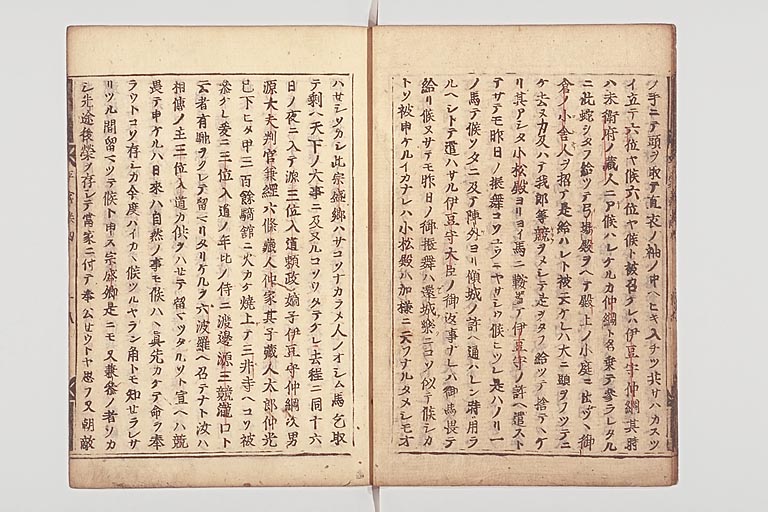 ノ手ニテ頭ヲ取テ直衣ノ袖ノ中ヘヒキ入チツ共サハカスツ
イ立テ六位ヤ候六位ヤ候ト被召ケレハ伊豆守仲綱其時
ハ未衛府ノ蔵人ニテ候ハレケルカ仲綱ト名乗テ参ラレタル
ニ此蛇ヲタフ給ツテ弓場殿ヲヘテ殿上ノ小庭ニ出ツヽ御
倉ノ小舎人ヲ招テ是給ハレト被云ケレハ大ニ頭ヲフツテニ
ケ去ヌ力及ハテ我郎等競ヲメシテ是ヲタフ給ツテ捨テヽケ
リ其アシタ小松殿ヨリヨイ馬ニ鞍置テ伊豆守ノ許ヘ遣スト
テサテモ昨日ノ振舞コソユウニヤサシク候ヒツレ是ハノリ一
ノ馬テ候ツタニ及テ陣外ヨリ傾城ノ許ヘ通ハレン時用ラ
ルヘシトテ遣ハサル伊豆守大臣ノ御返事ナレハ御馬畏テ
給リ候ヌサテモ昨日ノ御振舞ハ還城楽ニコソ似テ候シカ
トソ被申ケルイカナレハ小松殿ハ加様ニユヽシウナルタメシモオ
ハセシソカシ此宗盛卿ハサコソナカラメ人ノオシム馬乞取
テ剰ヘ天下ノ大事ニ及ヌルコソウタテケレ去程ニ同十六
日ノ夜ニ入テ源三位入道頼政嫡子伊豆守仲綱次男
源大夫判官兼綱六條蔵人仲家其子蔵人太郎仲光
已下ヒタ甲三百餘騎館ニ火カケ焼上テ三井寺ヘコソ被
参ケレ爰ニ三位入道ノ年比ノ侍ニ渡邊源三競瀧口ト
云者有馳ヲクレテ留マリタリケルヲ六波羅ヘ召テナト汝ハ
相傳ノ主三位入道カ供ヲハセテ留マツタルソト宣ヘハ競
畏テ申ケルハ日來ハ自然ノ事モ候ハヽ真先カケテ命ヲ奉
ラウトコソ存シカ今度ハイカヽ候ツルヤラン角トモ知セラレサ
リツル間留マツテ候ト申ス宗盛卿是ニモ又兼参ノ者ソカ
シ先途後栄ヲ存シテ當家ニ付テ奉公セウトヤ思フ又朝敵